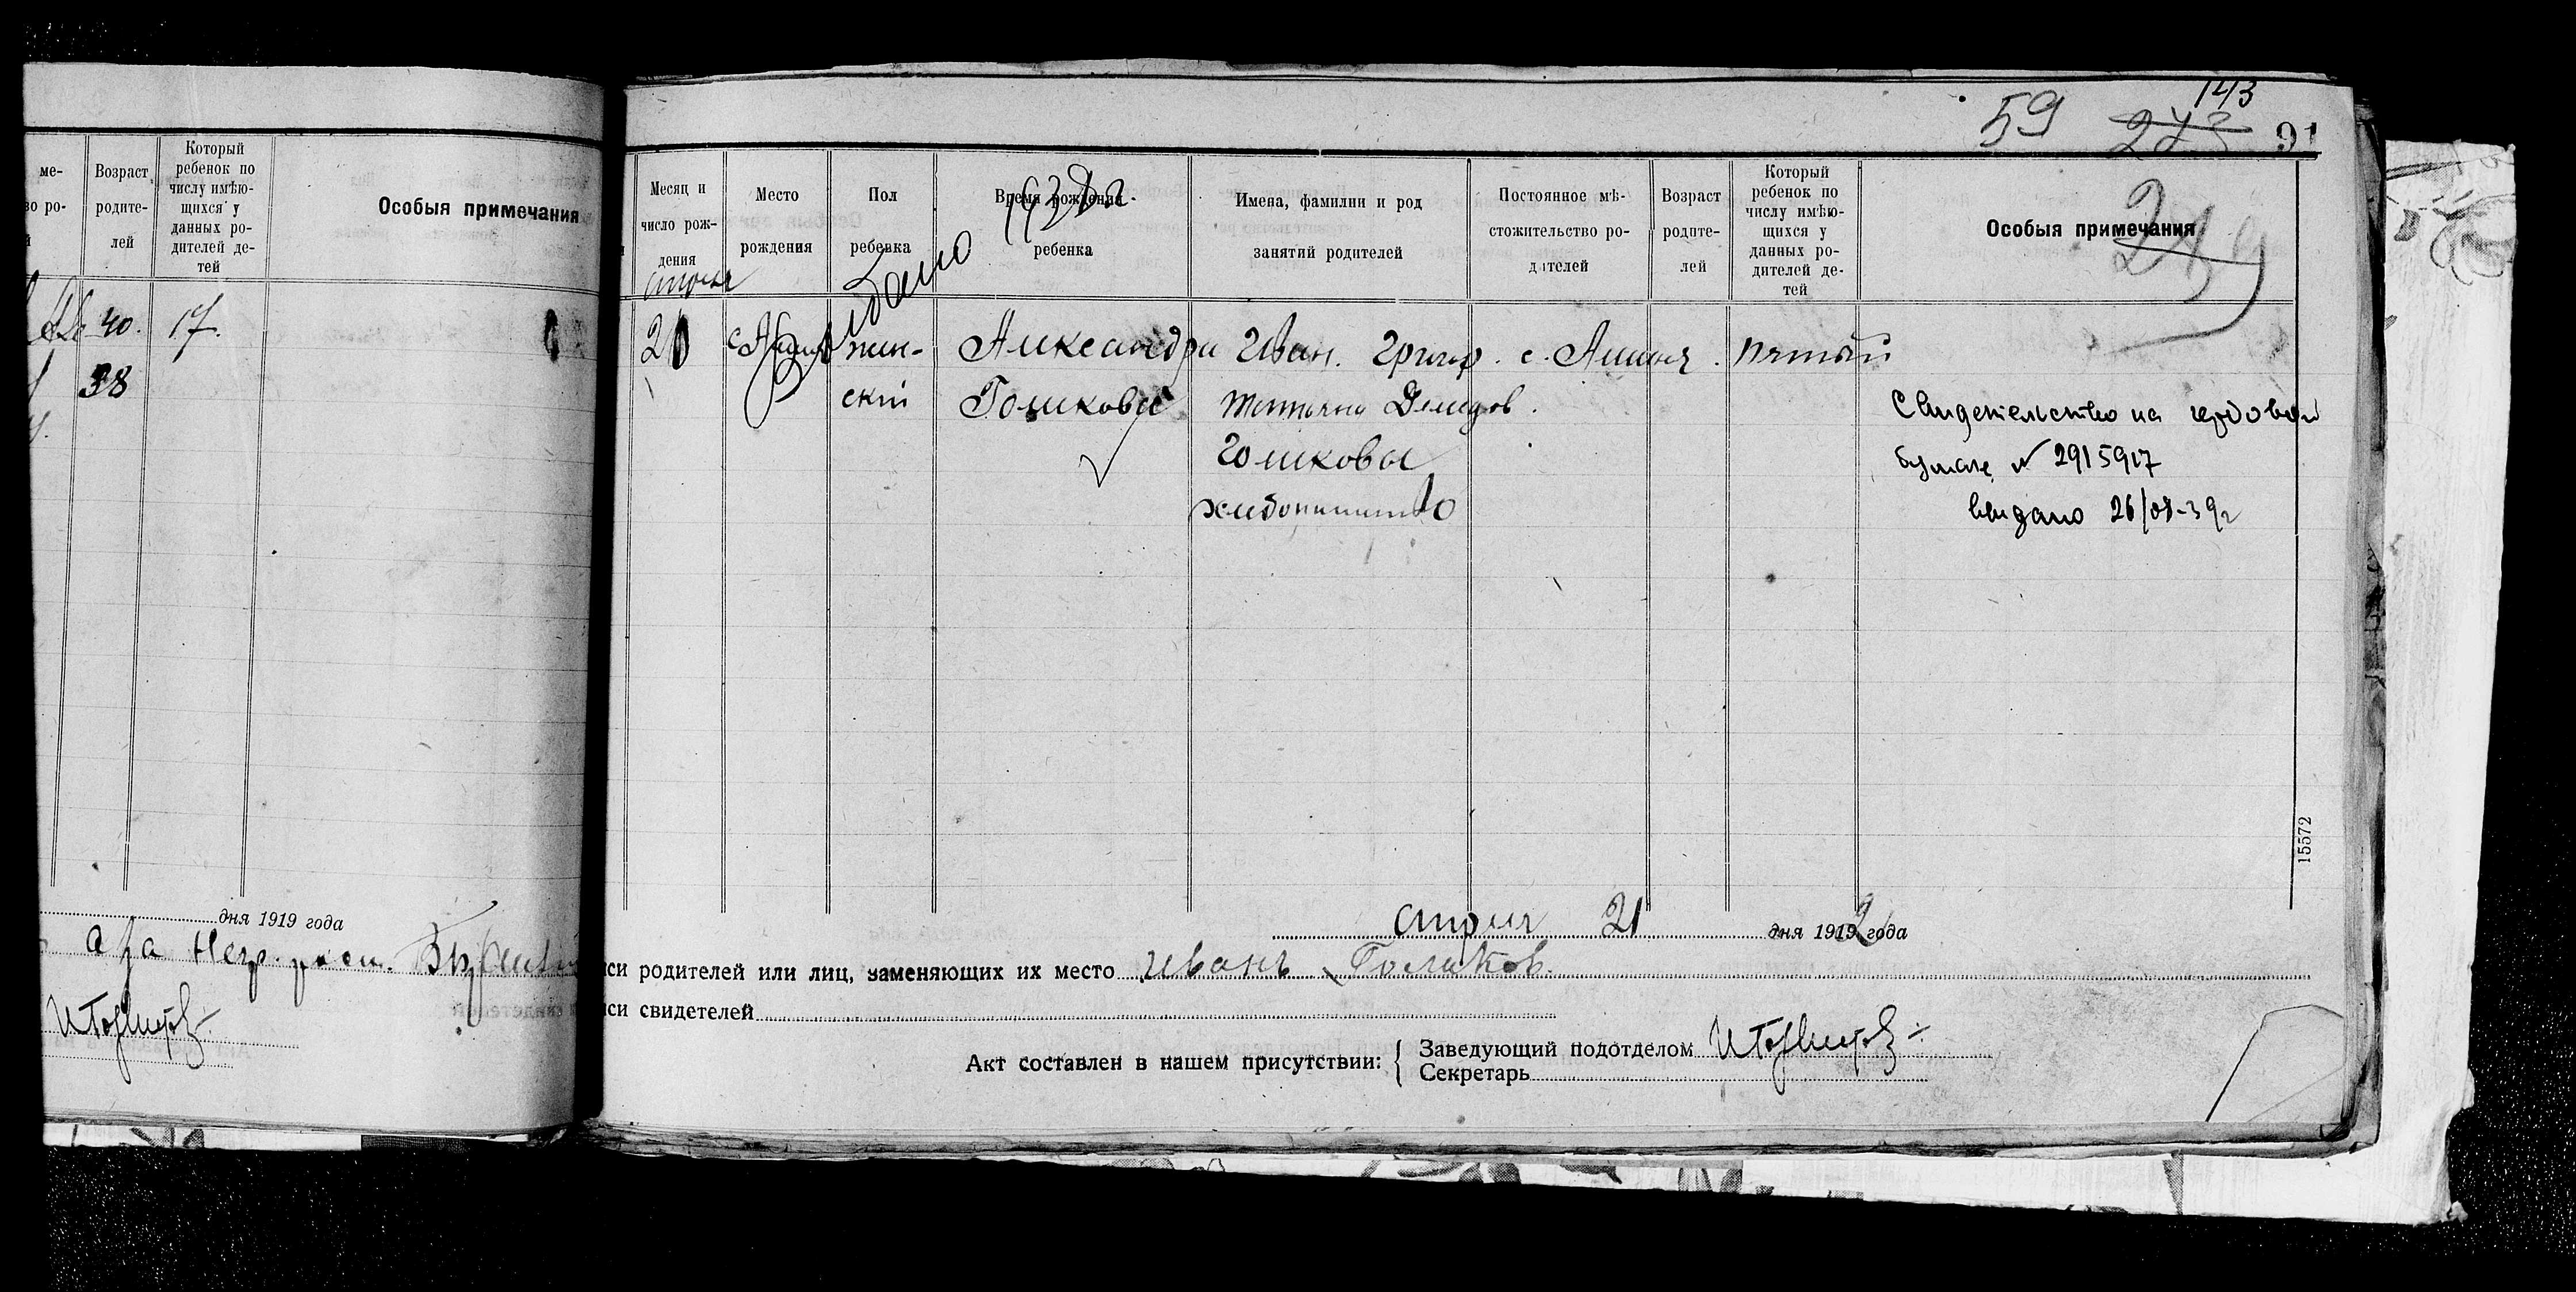 ме-
Возраст
родите-
лей
Который
ребенок по
числу имѣю-
щихся у
данных ро-
дителей де-
тей
Особыя примечания
40.
17.
38
дня 1919 года
143
59
91
Месяц и
число рож-
дения
Место
рождения
Пол
ребенка
Время рождения
ребенка
Имена, фамилии и род
занятий родителей
Постоянное мѣ-
стожительство ро-
дителей
Возраст
родите-
лей
Который
ребенок по
числу имѣю-
щихся у
данных ро-
дителей де-
тей
Особыя примечания
апреля
жен-
скій
Александра
Голикова
Иван. Григор.
Татьяна Демидов.
Голиковы
хлебопашество
с.
пятый
Свидетельство на гербовой
бумаге № 2915917
выдано 26/08-39г
15572
апреля 21 дня 1919 года
си родителей или лиц, заменяющих их место Иванъ Голиков.
си свидетелей
Акт составлен в нашем присутствии:
Заведующий подотделом
Секретарь